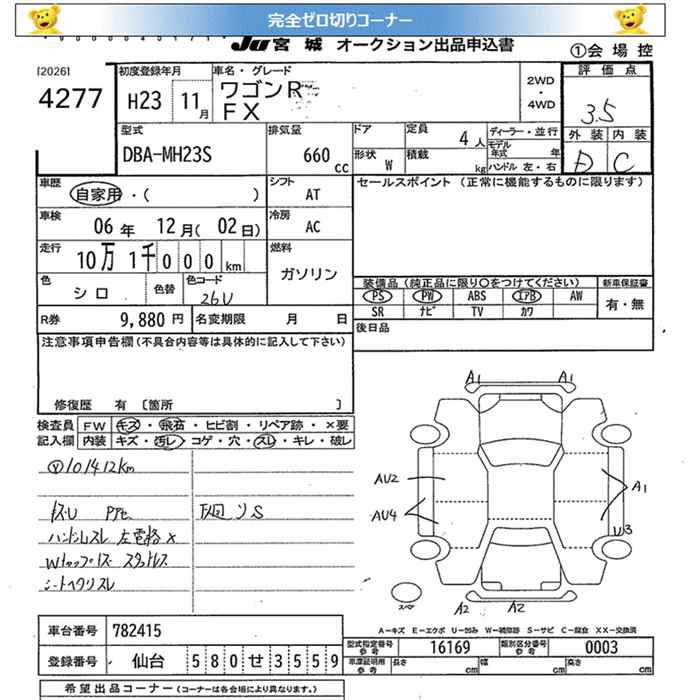 完全ゼロ切りコーナー
JU 宮城 オークション出品申込書
①会場控
[2026]
4277
初度登録年月
H23 11月
車名・グレード
ワゴンR
FX
2WD
・
4WD
評価点
3.5
外装 内装
D C
型式
DBA-MH23S
排気量
660 cc
ドア
形状 W
定員 4人
積載 kg
ディーラー・並行
モデル年式 年
ハンドル 左・右
車歴
自家用・( )
シフト
AT
セールスポイント (正常に機能するものに限ります)
車検
06年 12月(02日)
冷房
AC
走行
10万1千000km
燃料
ガソリン
色
シロ
色替
色コード
26U
装備品 (純正品に限り○をつけてください)
新車保証書
PS PW ABS エアB AW
有・無
SR ナビ TV カワ
R券 9,880円
名変期限 月 日
後日品
注意事項申告欄 (不具合内容等は具体的に記入して下さい)
修復歴 有 [箇所 ]
検査員記入欄
FW キズ・飛石・ヒビ割・リペア跡・×要
内装 キズ・汚レ・コゲ・穴・スレ・キレ・破レ
101412km
ハンドルスレ 左電格×
シートヘタリスレ
A1 A1
AU2
AU4
A1
U3
スペア
A2 A2
A-キズ E-エクボ U-凹み W-補修跡 S-サビ C-腐食 XX-交換済
車台番号 782415
型式指定番号 参考 16169
類別区分番号 参考 0003
登録番号 仙台 580せ3559
車庫証明用 参考 長さ cm 幅 cm 高さ cm
希望出品コーナー (コーナーは各会場により異なります。)